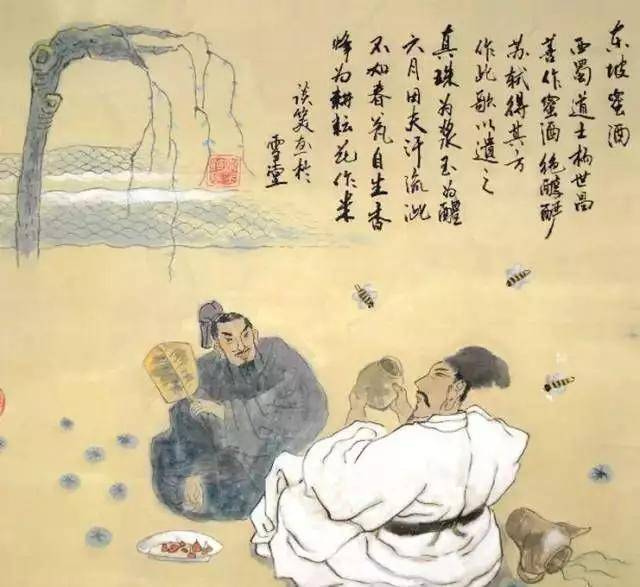 东坡蜜酒
西蜀道士杨世昌
善作蜜酒绝醇酽
苏轼得其方
作此歌以遗之
真珠为浆玉为醴
六月田夫汗流泚
不如春瓮自生香
蜂为耕耘花作米
於
雪堂